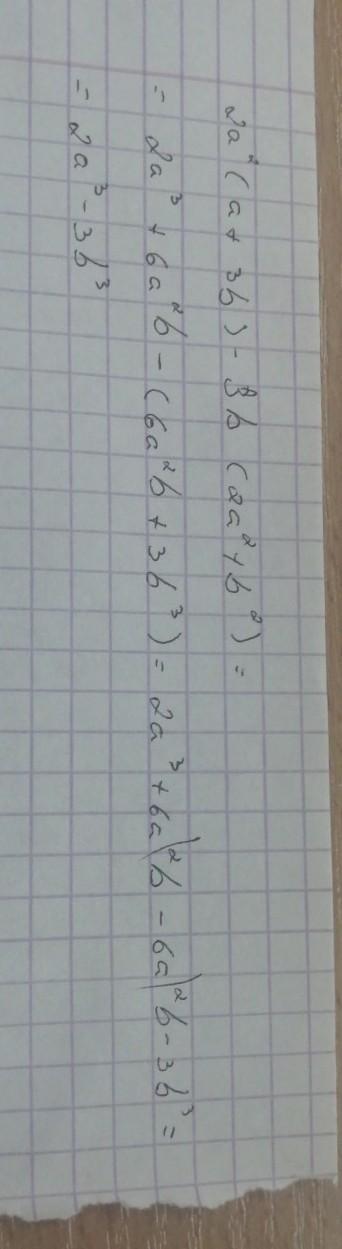 2a² (a + 3b) - 3b (2a² + b²) =
= 2a³ + 6a²b - (6a²b + 3b³) = 2a³ + 6a²b - 6a²b - 3b³ =
= 2a³ - 3b³